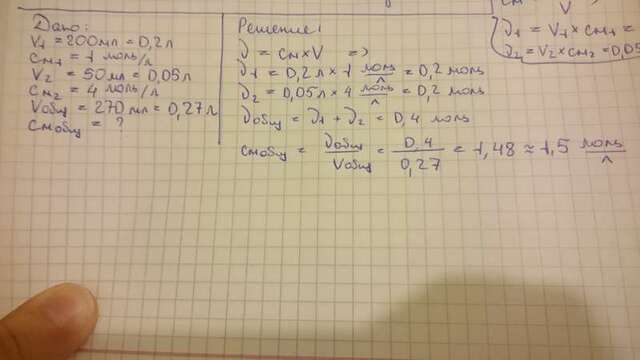 Дано:
V1 = 200мл = 0,2л
Cм1 = 1 моль/л
V2 = 50мл = 0,05л
Cм2 = 4 моль/л
Vобщ = 270мл = 0,27л
Cмобщ = ?
Решение:
ν = Cм × V =>
ν1 = 0,2л × 1 моль/л = 0,2 моль
ν2 = 0,05л × 4 моль/л = 0,2 моль
νобщ = ν1 + ν2 = 0,4 моль
Cмобщ = νобщ/Vобщ = 0,4/0,27 = 1,48 ≈ 1,5 моль/л
V
ν1 = V1 × Cм1 =
ν2 = V2 × Cм2 = 0,05